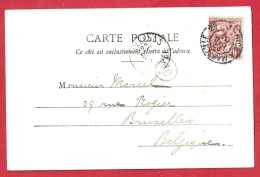 CARTE POSTALE
Ce côté est exclusivement réservé à l'adresse
Monsieur Marcel
39 rue Rogier
Bruxelles
Belgique